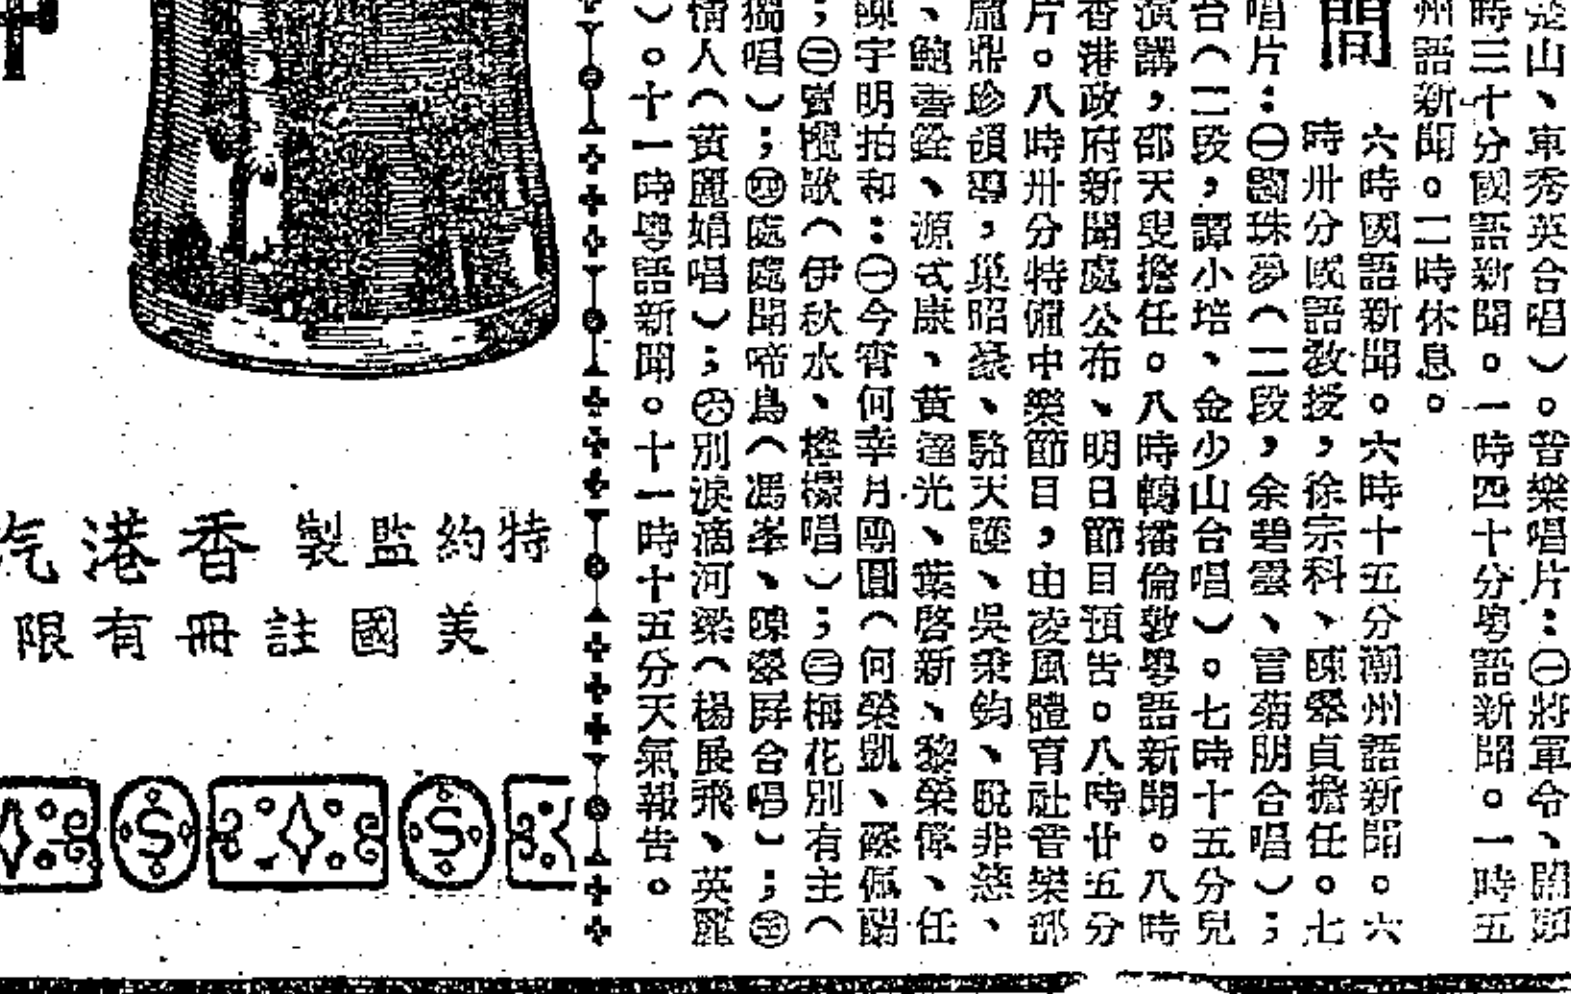 是山、車秀英合唱）。普樂唱片：㊀將軍令、
時三十分國語新聞。一時四十分粵語新聞。一時五
州語新聞。二時休息。
間
六時國語新聞。六時十五分潮州語新聞。六
時卅分國語教授，徐宗科、陳翠貞擔任。七
唱片：㊀珠夢（二段，余碧雲、言菊朋合唱）；
台（二段，譚小培、金少山合唱）。七時十五分兒
演講，邵天叟擔任。八時轉播倫敦粵語新聞。八時
香港政府新聞處公布、明日節目預告。八時廿五分
片。八時卅分特備中樂節目，由凌風體育社音樂部
龐鼎珍領導，巢昭豪、駱天護、吳秉鈞、脫非慈、
、鮑善銓、源式康、黃光、葉啓新、黎榮偉、任
陳宇明拍和：㊀今宵何幸月團圓（何榮凱、蘇佩
；㊁賣欖歌（伊秋水、檸檬唱）；㊂梅花別有主（
獨唱）；㊃處處聞啼鳥（馮峯、陳翠屏合唱）；㊄
情人（黃麗娟唱）；㊅別淚滴河梁（楊展飛、英麗
）。十一時粵語新聞。十一時十五分天氣報告。
特約監製 香港汽
美國註冊有限